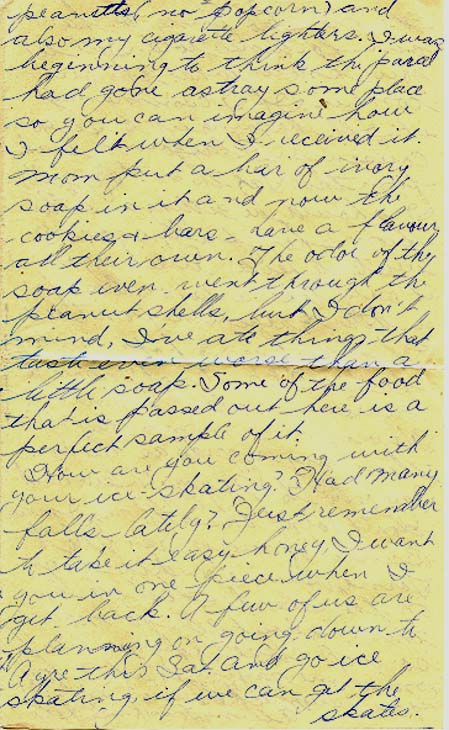 peanuts (no popcorn) and
also my cigarette lighters. I was
beginning to think the parcel
had gone astray some place
so you can imagine how
I felt when I received it.
Mom put a bar of ivory
soap in it and now the
cookies & bars - have a flavour
all their own. The odor of the
soap even went through the
peanut shells, but I don't
mind, I've ate things that
taste even worse than a
little soap. Some of the food
that is passed out here is a
perfect sample of it.
How are you coming with
your ice-skating? Had many
falls lately? Just remember
to take it easy honey, I want
you in one piece when I
get back. A few of us are
planning on going down to
this Sat and go ice
skating, if we can get the
skates.